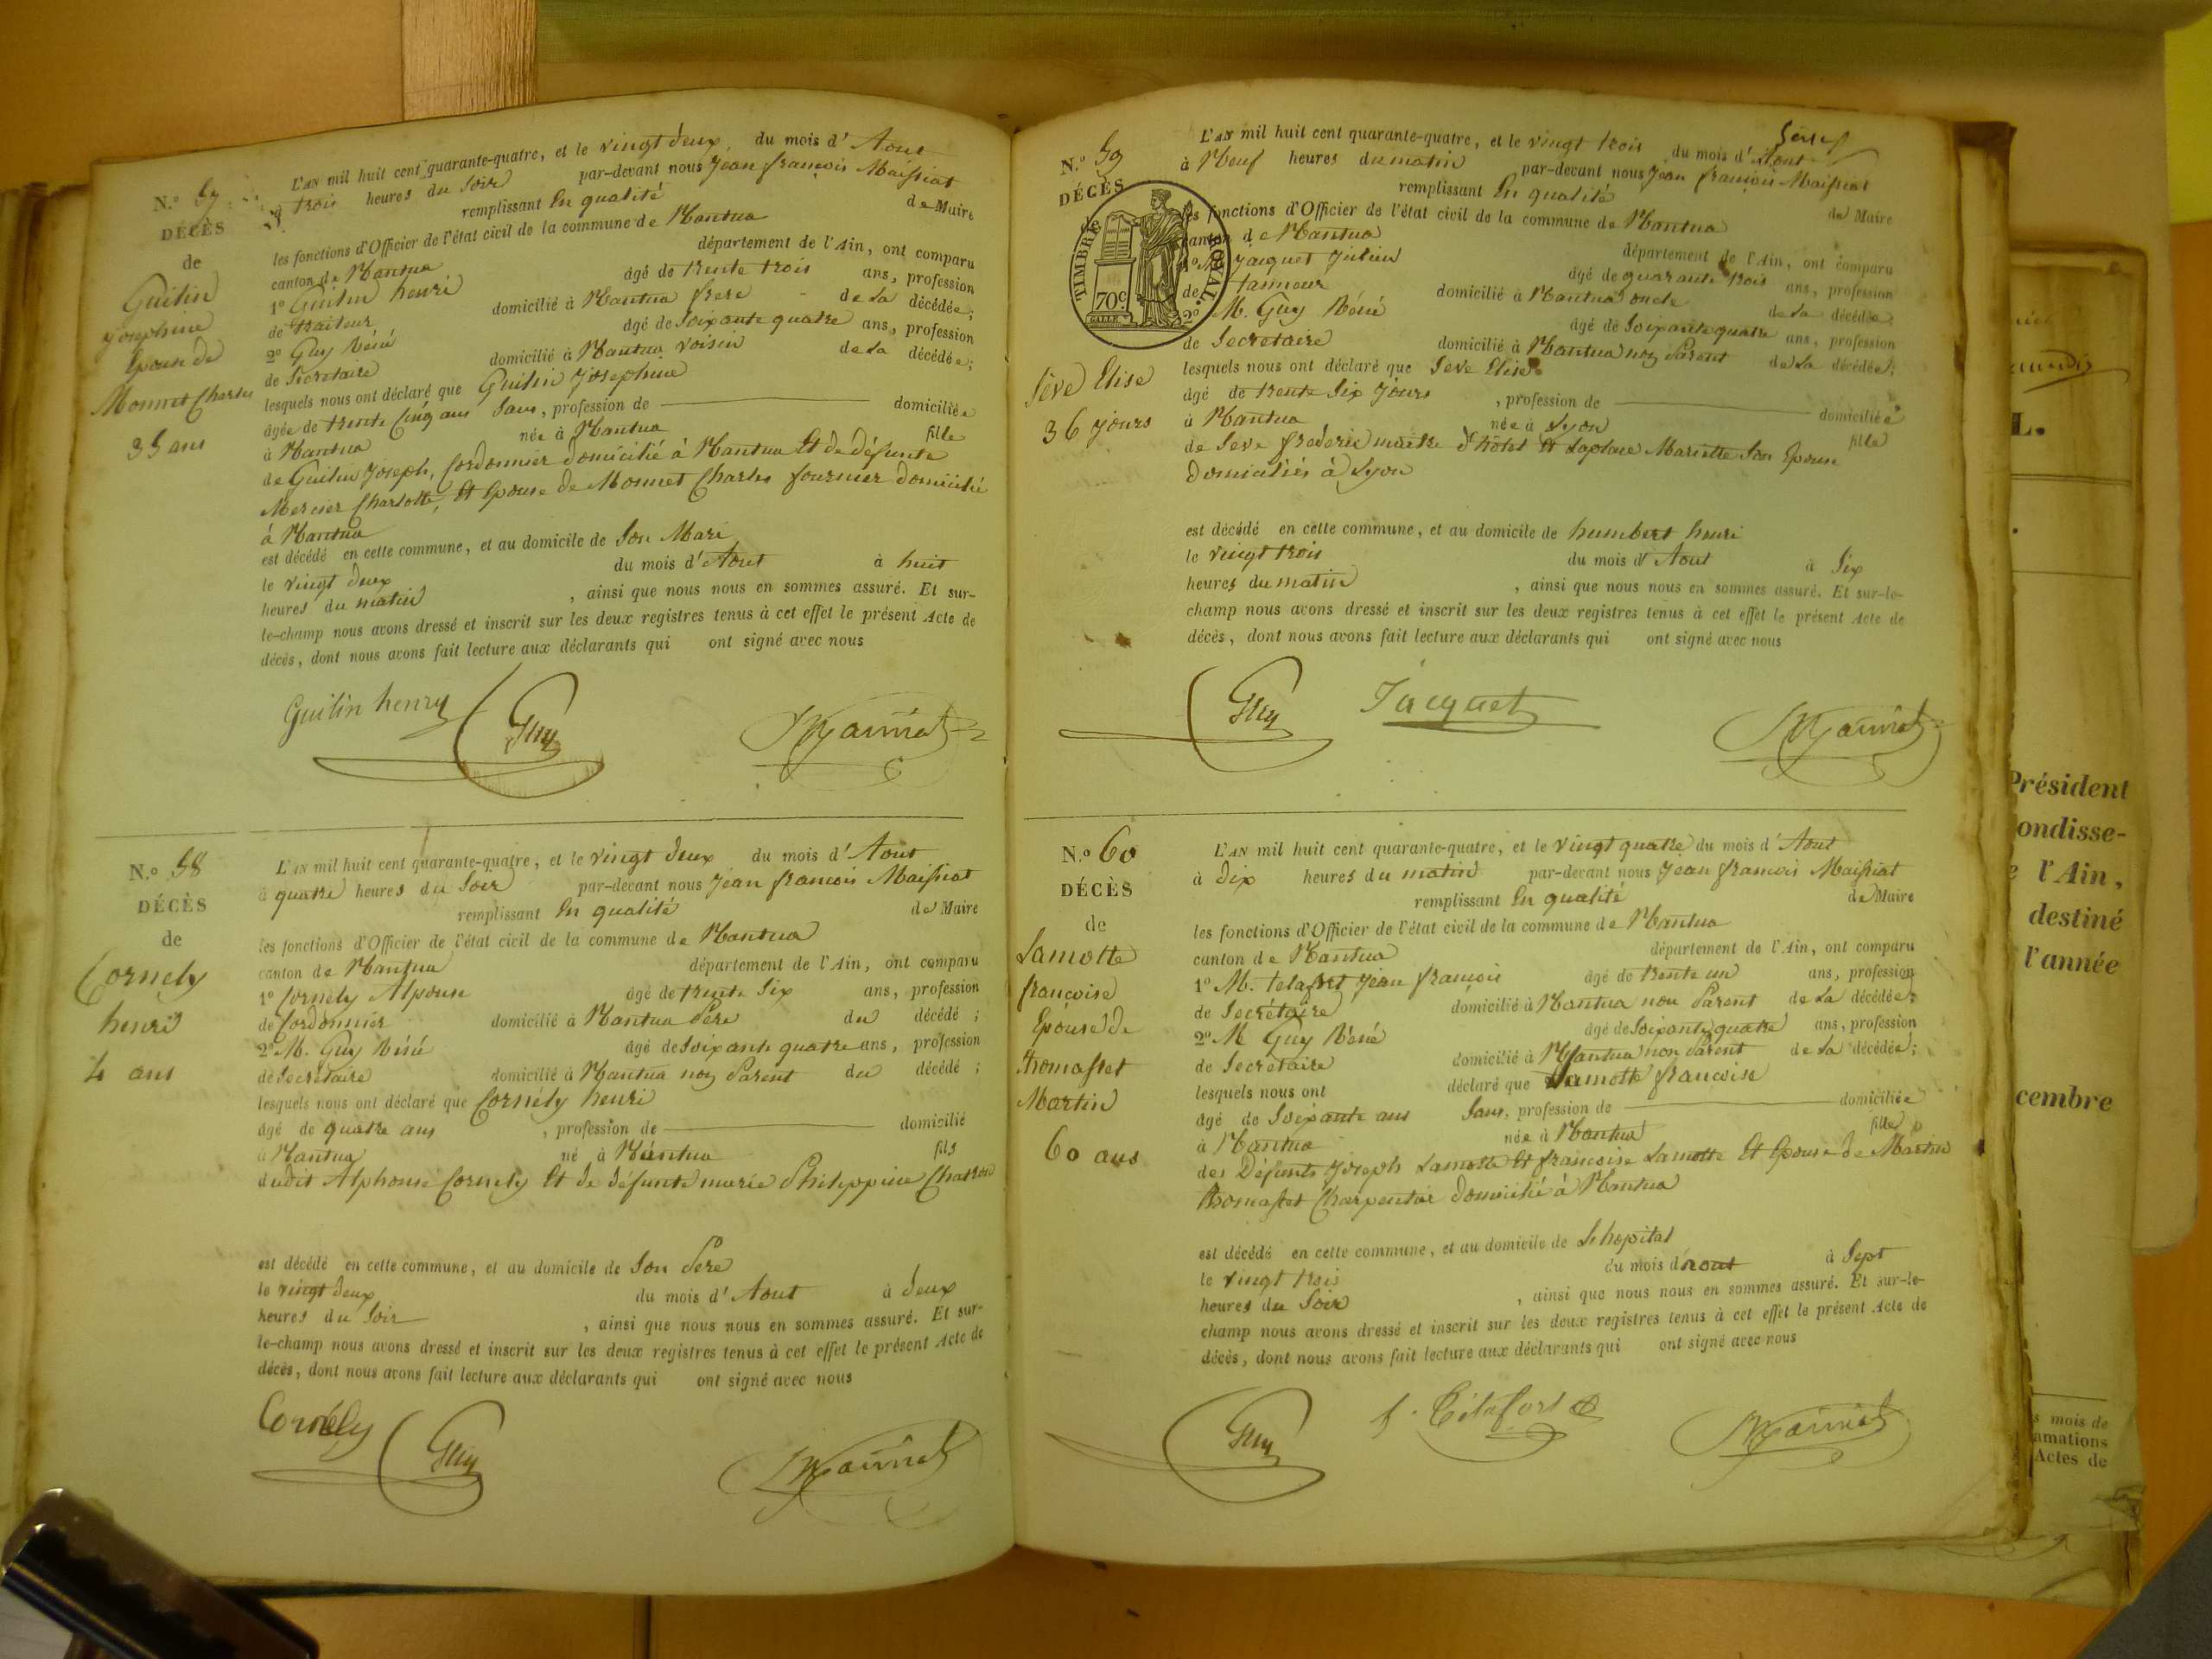 N.º 57
DÉCÈS
de
Guilin
josephine
Epouse de
Monnet Charles
35 ans
L'AN mil huit cent quarante-quatre, et le vingt deux du mois d'Aout
à trois heures du Soir par-devant nous Jean francois Maissiat
remplissant En qualité de Maire
les fonctions d'Officier de l'état civil de la commune de Nantua
canton de Nantua département de l'Ain, ont comparu
1º Guilin henri âgé de trente trois ans, profession
de traiteur domicilié à Nantua frere de La décédée;
2º Guy Réné âgé de Soixante quatre ans, profession
de Secretaire domicilié à Nantua voisin de La décédée;
lesquels nous ont déclaré que Guilin Josephine
âgée de trente Cinq ans Sans, profession de domiciliée
à Nantua née à Nantua fille
de Guilin Joseph, Cordonnier domicilié à Nantua Et de défunte
Mercier Charlotte, Et Epouse de Monnet Charles fournier domicilié
à Nantua
est décédé en cette commune, et au domicile de Son Mari
le vingt deux du mois d'Aout à huit
heures du matin, ainsi que nous nous en sommes assuré. Et sur-
le-champ nous avons dressé et inscrit sur les deux registres tenus à cet effet le présent Acte de
décès, dont nous avons fait lecture aux déclarants qui ont signé avec nous
Guilin henry Guy Maissiat
N.º 58
DÉCÈS
de
Cornely
henri
4 ans
L'AN mil huit cent quarante-quatre, et le vingt deux du mois d'Aout
à quatre heures du Soir par-devant nous Jean francois Maissiat
remplissant En qualité de Maire
les fonctions d'Officier de l'état civil de la commune de Nantua
canton de Nantua département de l'Ain, ont comparu
1º Cornely Alponse âgé de trente Six ans, profession
de Cordonnier domicilié à Nantua Pére du décédé;
2º M. Guy Réné âgé de Soixante quatre ans, profession
de Secretaire domicilié à Nantua non Parent du décédé;
lesquels nous ont déclaré que Cornely henri
âgé de quatre ans, profession de domicilié
à Nantua né à Nantua fils
dudit Alphonse Cornely Et de défunte marie Philippine Chatron
est décédé en cette commune, et au domicile de Son Pere
le vingt deux du mois d'Aout à deux
heures du Soir, ainsi que nous nous en sommes assuré. Et sur-
le-champ nous avons dressé et inscrit sur les deux registres tenus à cet effet le présent Acte de
décès, dont nous avons fait lecture aux déclarants qui ont signé avec nous
Cornély Guy Maissiat
N.º 59
DÉCÈS
de
TIMBRE ROYAL
70c.
GALLE
Séve Elise
36 jours
L'AN mil huit cent quarante-quatre, et le vingt trois du mois d'Aout
à Neuf heures du matin par-devant nous Jean francois Maissiat
remplissant En qualité de Maire
les fonctions d'Officier de l'état civil de la commune de Nantua
canton de Nantua département de l'Ain, ont comparu
1º M. Jacquet Julien âgé de quarante trois ans, profession
de tanneur domicilié à Nantua oncle de La décédée
2º M. Guy Réné âgé de Soixante quatre ans, profession
de Secretaire domicilié à Nantua non Parent de La décédée;
lesquels nous ont déclaré que Seve Elise
âgé de trente Six Jours, profession de domiciliée
à Nantua née à Lyon fille
de Seve frederic maitre d'hôtel Et Laplace Mariette Son Epouse
Domiciliés à Lyon
est décédé en cette commune, et au domicile de humbert henri
le vingt trois du mois d'Aout à Six
heures du matin, ainsi que nous nous en sommes assuré. Et sur-le-
champ nous avons dressé et inscrit sur les deux registres tenus à cet effet le présent Acte de
décès, dont nous avons fait lecture aux déclarants qui ont signé avec nous
Guy Jacquet Maissiat
N.º 60
DÉCÈS
de
Lamotte
francoise
Epouse de
thomasset
Martin
60 ans
L'AN mil huit cent quarante-quatre, et le vingt quatre du mois d'Aout
à dix heures du matin par-devant nous Jean francois Maissiat
remplissant En qualité de Maire
les fonctions d'Officier de l'état civil de la commune de Nantua
canton de Nantua département de l'Ain, ont comparu
1º M. Jean francois âgé de trente un ans, profession
de Secrétaire domicilié à Nantua non Parent de La décédée;
2º M Guy Réné âgé de Soixante quatre ans, profession
de Secretaire domicilié à Nantua non Parent de La décédée;
lesquels nous ont déclaré que Lamotte francoise
âgé de Soixante ans Sans, profession de domiciliée
à Nantua née à Nantua fille
des Défunts Joseph Lamotte Et francoise Lamotte Et Epouse de Martin
thomasset Charpentier domicilié à Nantua
est décédé en cette commune, et au domicile de Lhopital
le vingt trois du mois d'aout à Sept
heures du Soir, ainsi que nous nous en sommes assuré. Et sur-le-
champ nous avons dressé et inscrit sur les deux registres tenus à cet effet le présent Acte de
décès, dont nous avons fait lecture aux déclarants qui ont signé avec nous
Guy Maissiat
L.
Président
ondisse-
e l'Ain,
destiné
l'année
cembre
s mois de
amations
Actes de